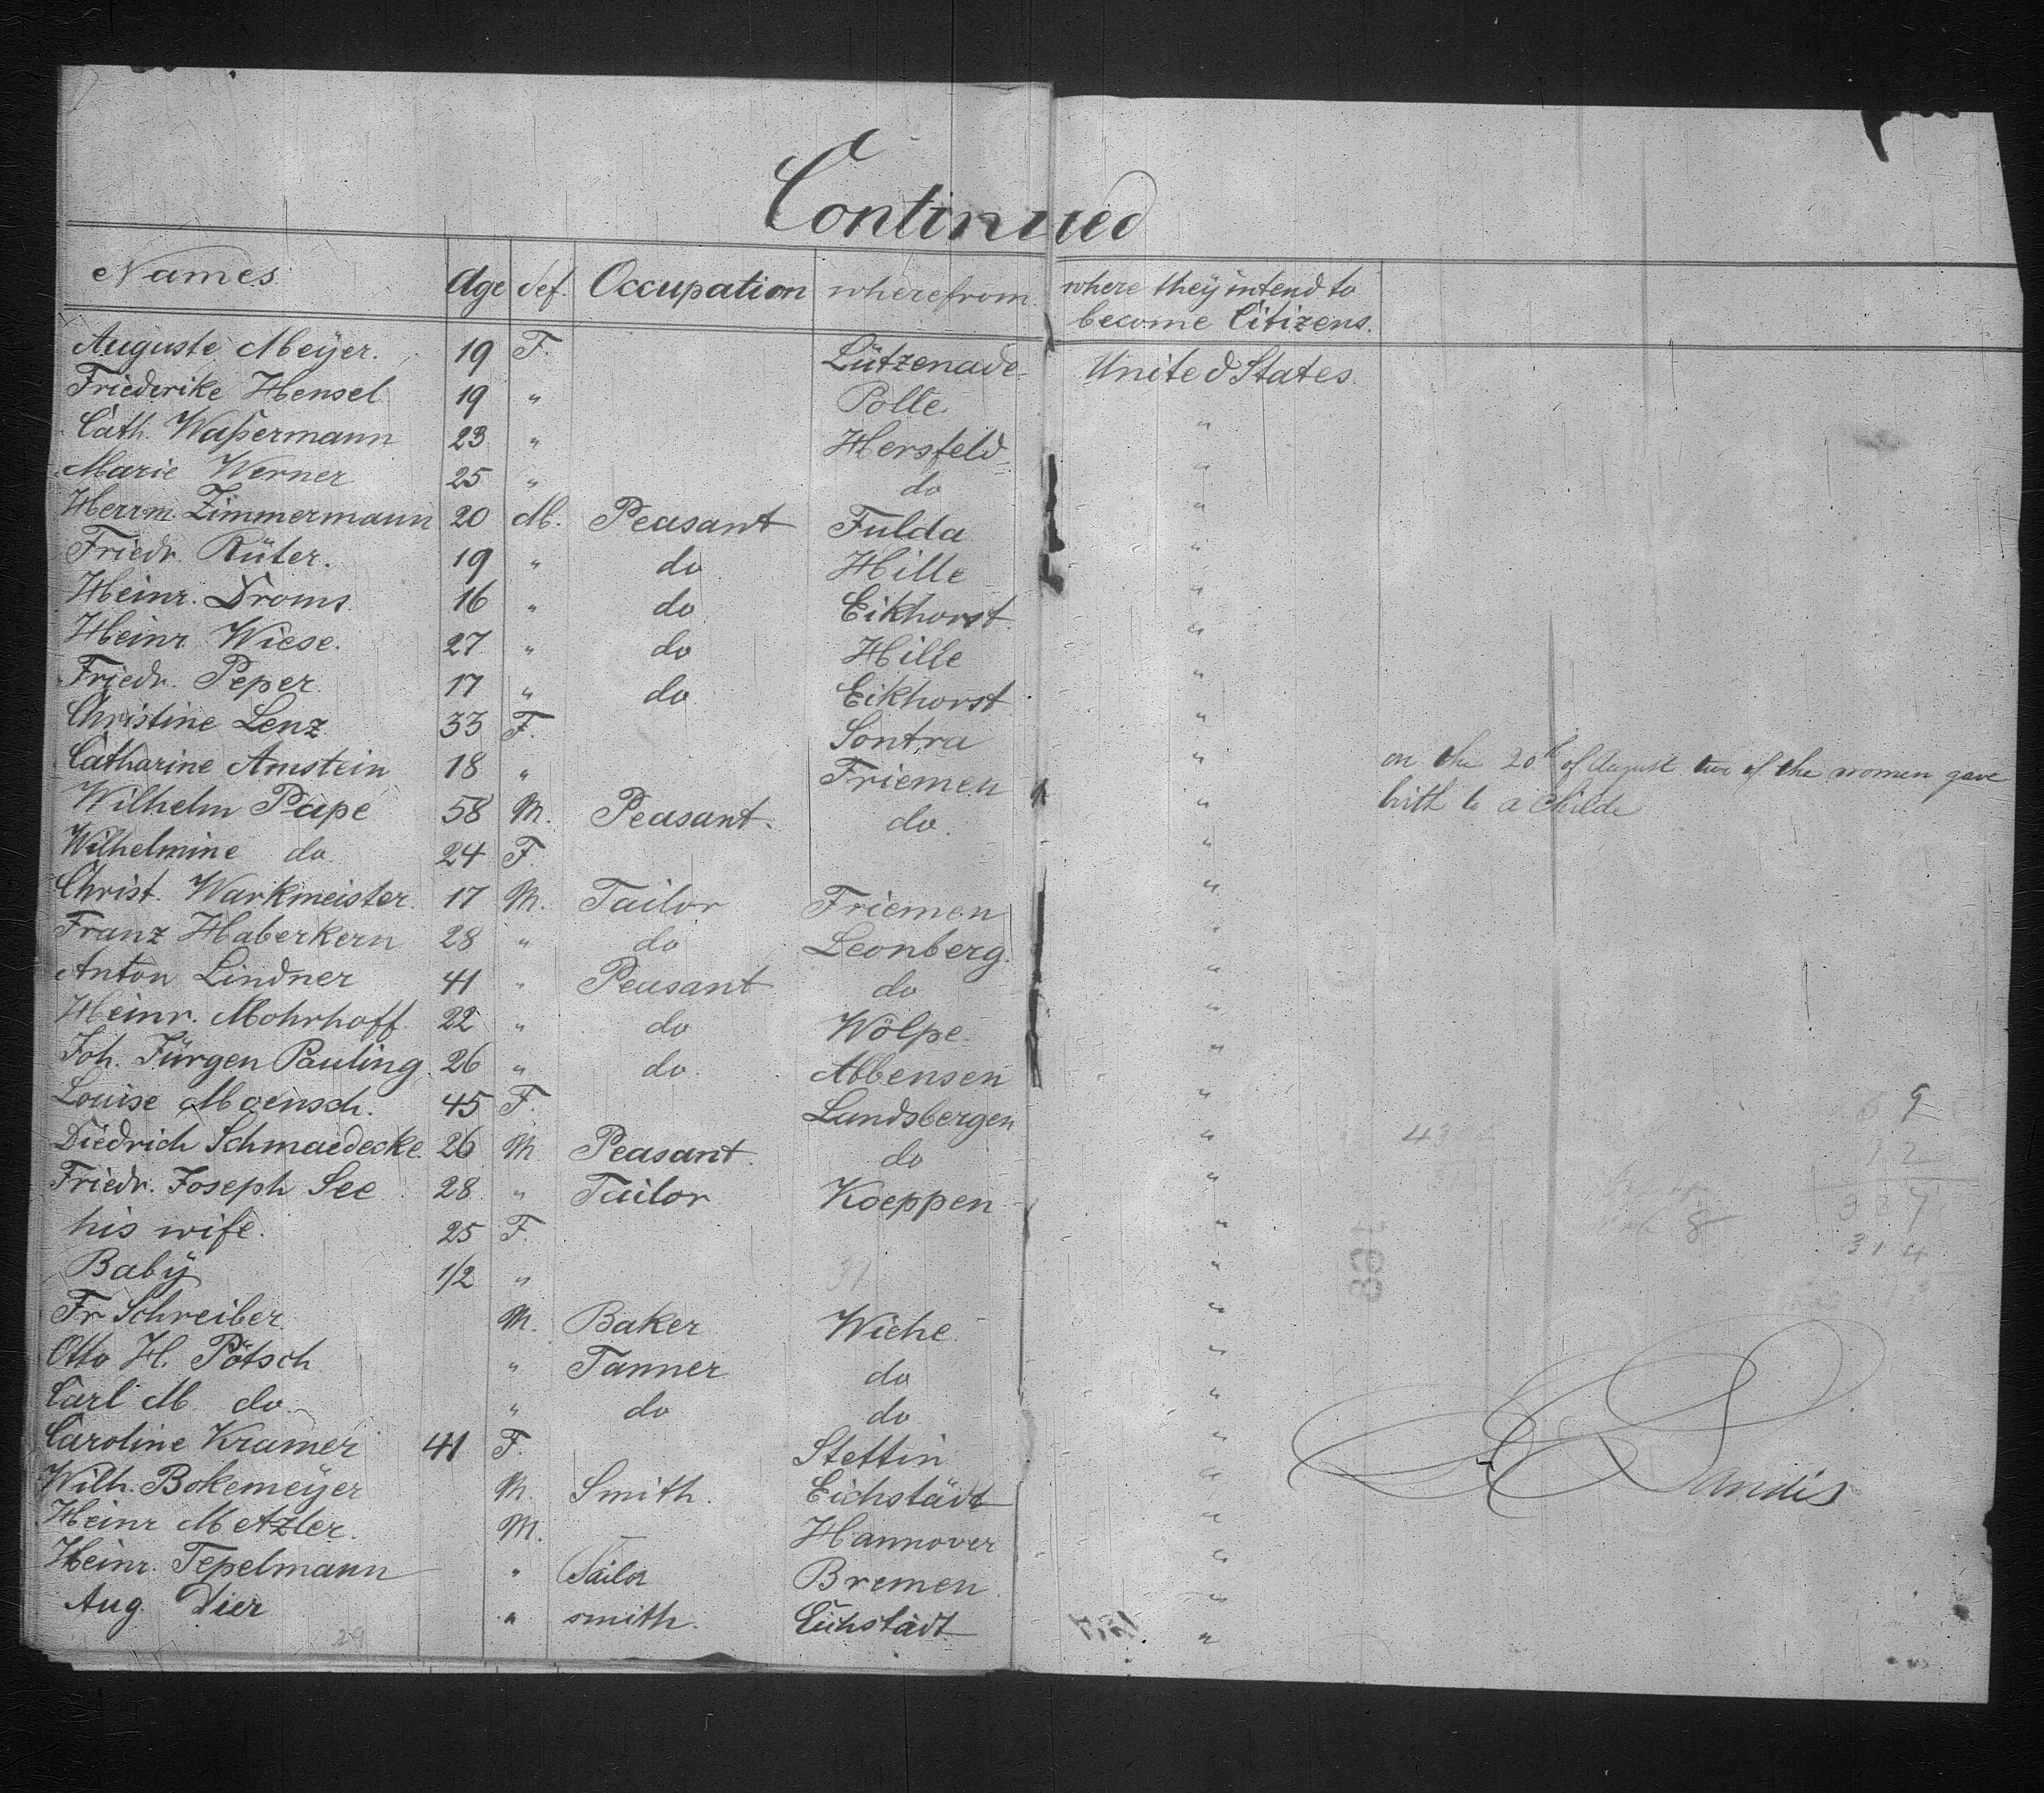 Continued
Names Age Sex. Occupation wherefrom where they intend to
become Citizens.
Auguste Meÿer. 19 F. Lützenade United States
Friederike Hensel 19 " Polle "
Cath. Waßermann 23 " Hersfeld "
Marie Werner 25 " do "
Herrm. Zimmermann 20 M. Peasant Fulda "
Friedr. Rüter. 19 " do Hille "
Heinr. Droms 16 " do Eikhorst "
Heinr. Wiese. 27 " do Hille "
Friedr. Peper. 17 " do Eikhorst "
Christine Lenz 33 F. Sontra "
Catharine Arnstein 18 " Friemen "
on the 20th of August two of the women gave
birth to a Childe
Wilhelm Pape 58 M. Peasant. do. "
Wilhelmine do 24 F. "
Christ. Warkmeister 17 M. Tailor Friemen "
Franz Haberkern 28 " do Leonberg. "
Anton Lindner 41 " Peasant do "
Heinr. Mohrhoff 22 " do Wölpe "
Joh. Jürgen Pauling 26 " do Abbensen "
Louise Moensch. 45 F. Landsbergen "
Diedrich Schmaedecke. 26 M Peasant. do "
Friedr. Joseph See 28 " Tailor Koeppen "
his wife. 25 F. "
Babÿ 1/2 " "
Fr Schreiber M. Baker Wiehe "
Otto H. Pötsch " Tanner do "
Carl M. do " do do "
Caroline Kramer 41 F. Stettin "
Wilh. Bokemeÿer M. Smith. Eichstädt "
Heinr Metzler. M. — Hannover "
Heinr. Tepelmann " Tailor Bremen "
Aug. Dier " smith. Eichstädt "
29
9
12
327
8
314
Sandis